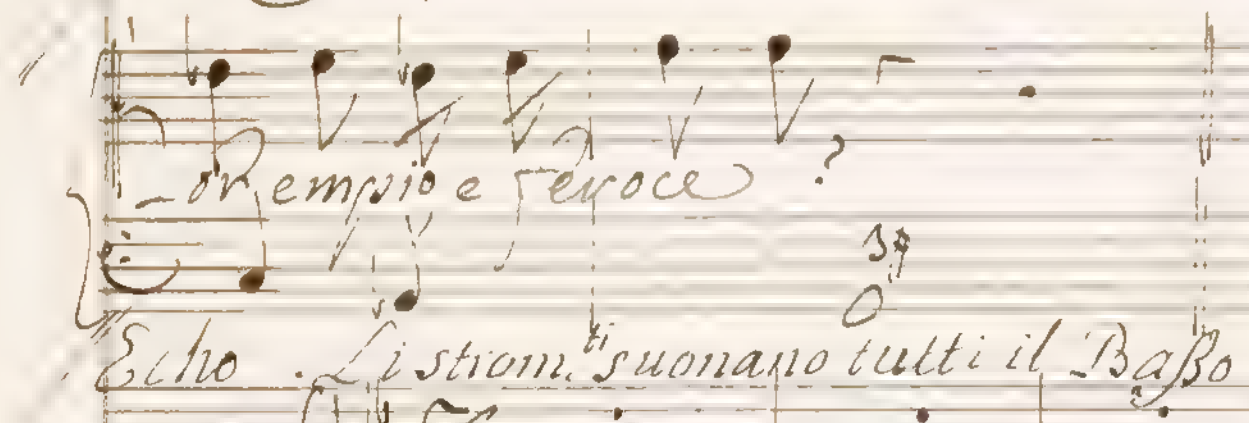 _or empio e feroce ?
Echo. Li strom.ti suonano tutti il Baßo